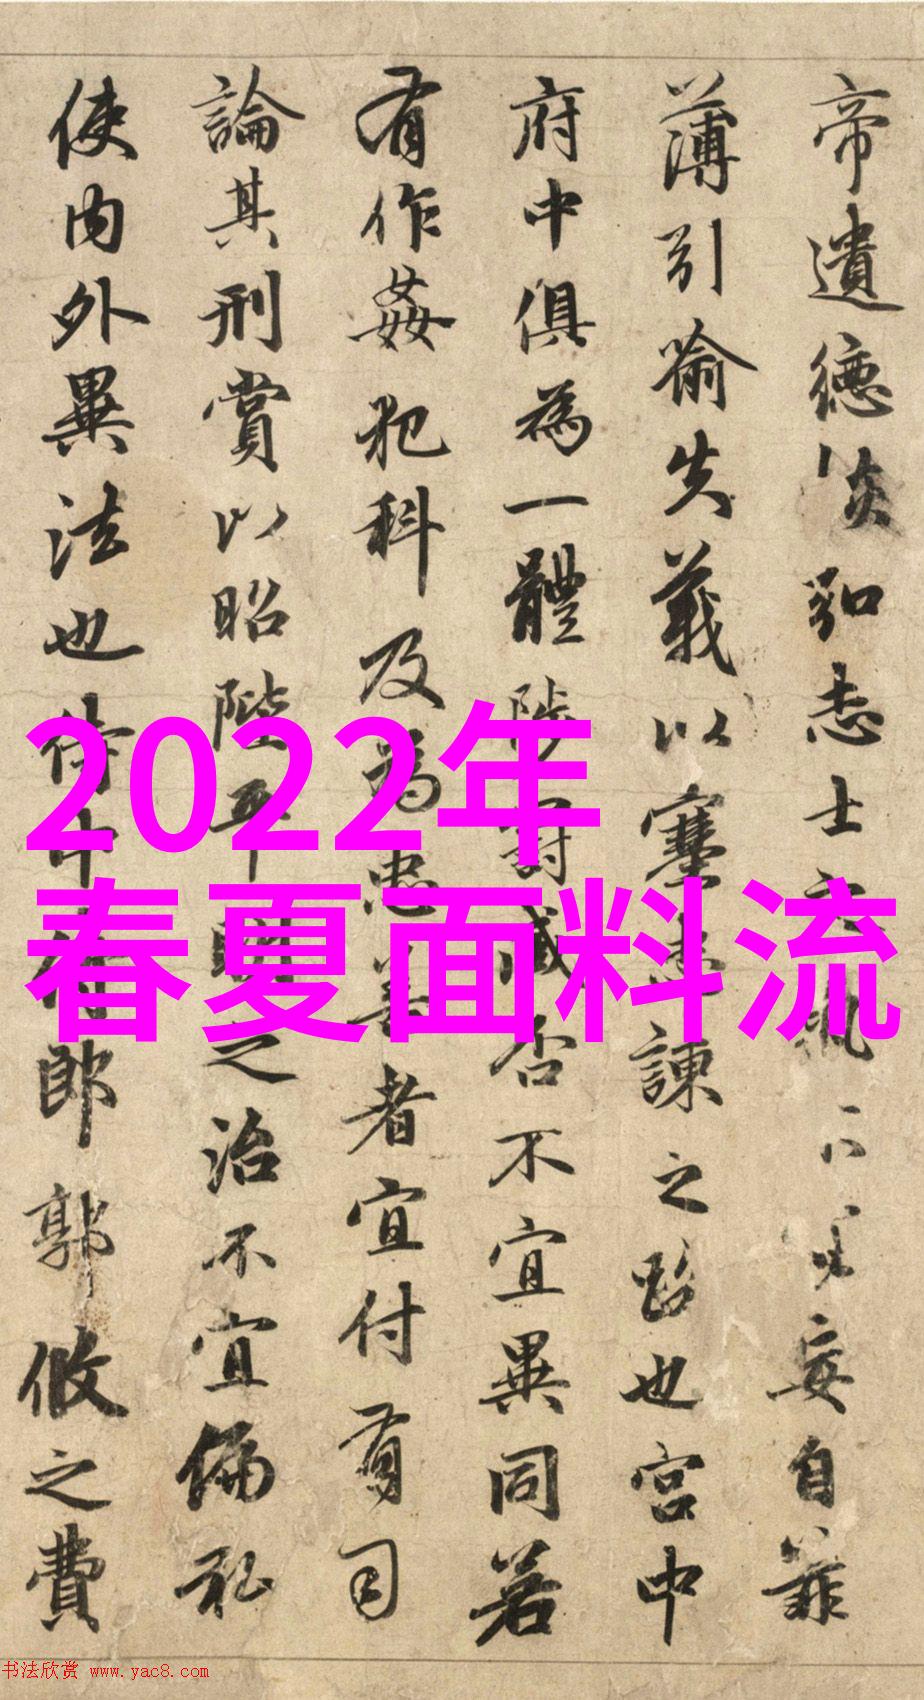 帝遺德恢弘志士之氣不宜妄自菲
薄引喻失義以塞忠諫之路也宮中
府中俱為一體陟罰臧否不宜異同若
有作姦犯科及為忠善者宜付有司
論其刑賞以昭陛平明之治不宜偏私
使內外異法也侍中侍郎郭攸之費
2022年
春夏面料流
书法欣赏 www.yac8.com